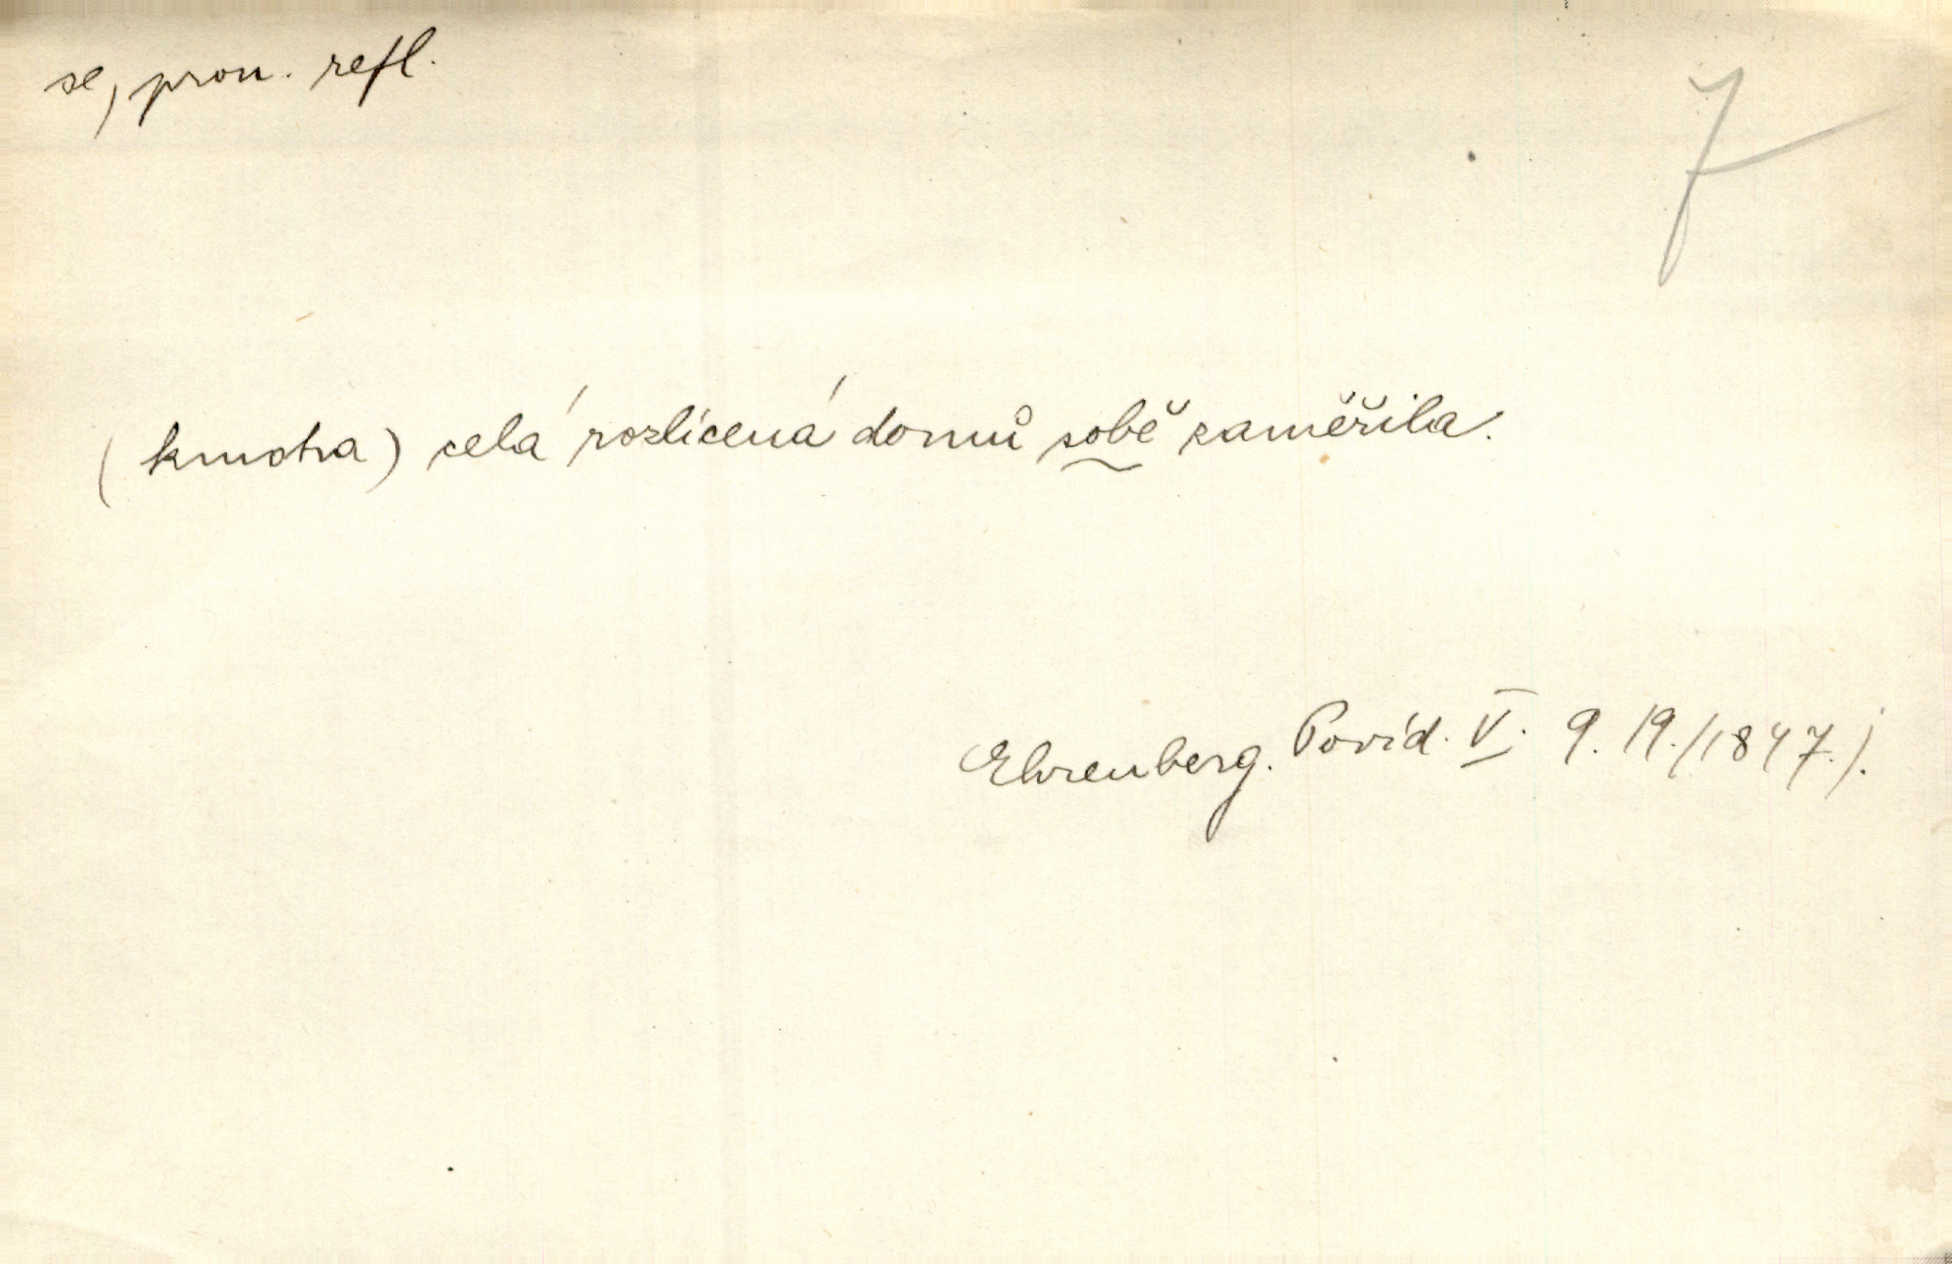 se, pron. refl.
7
(kmotra) celá rozlícená domů sobě zaměřila.
Ehrenberg. Povíd. V. 9. 19./1847./.